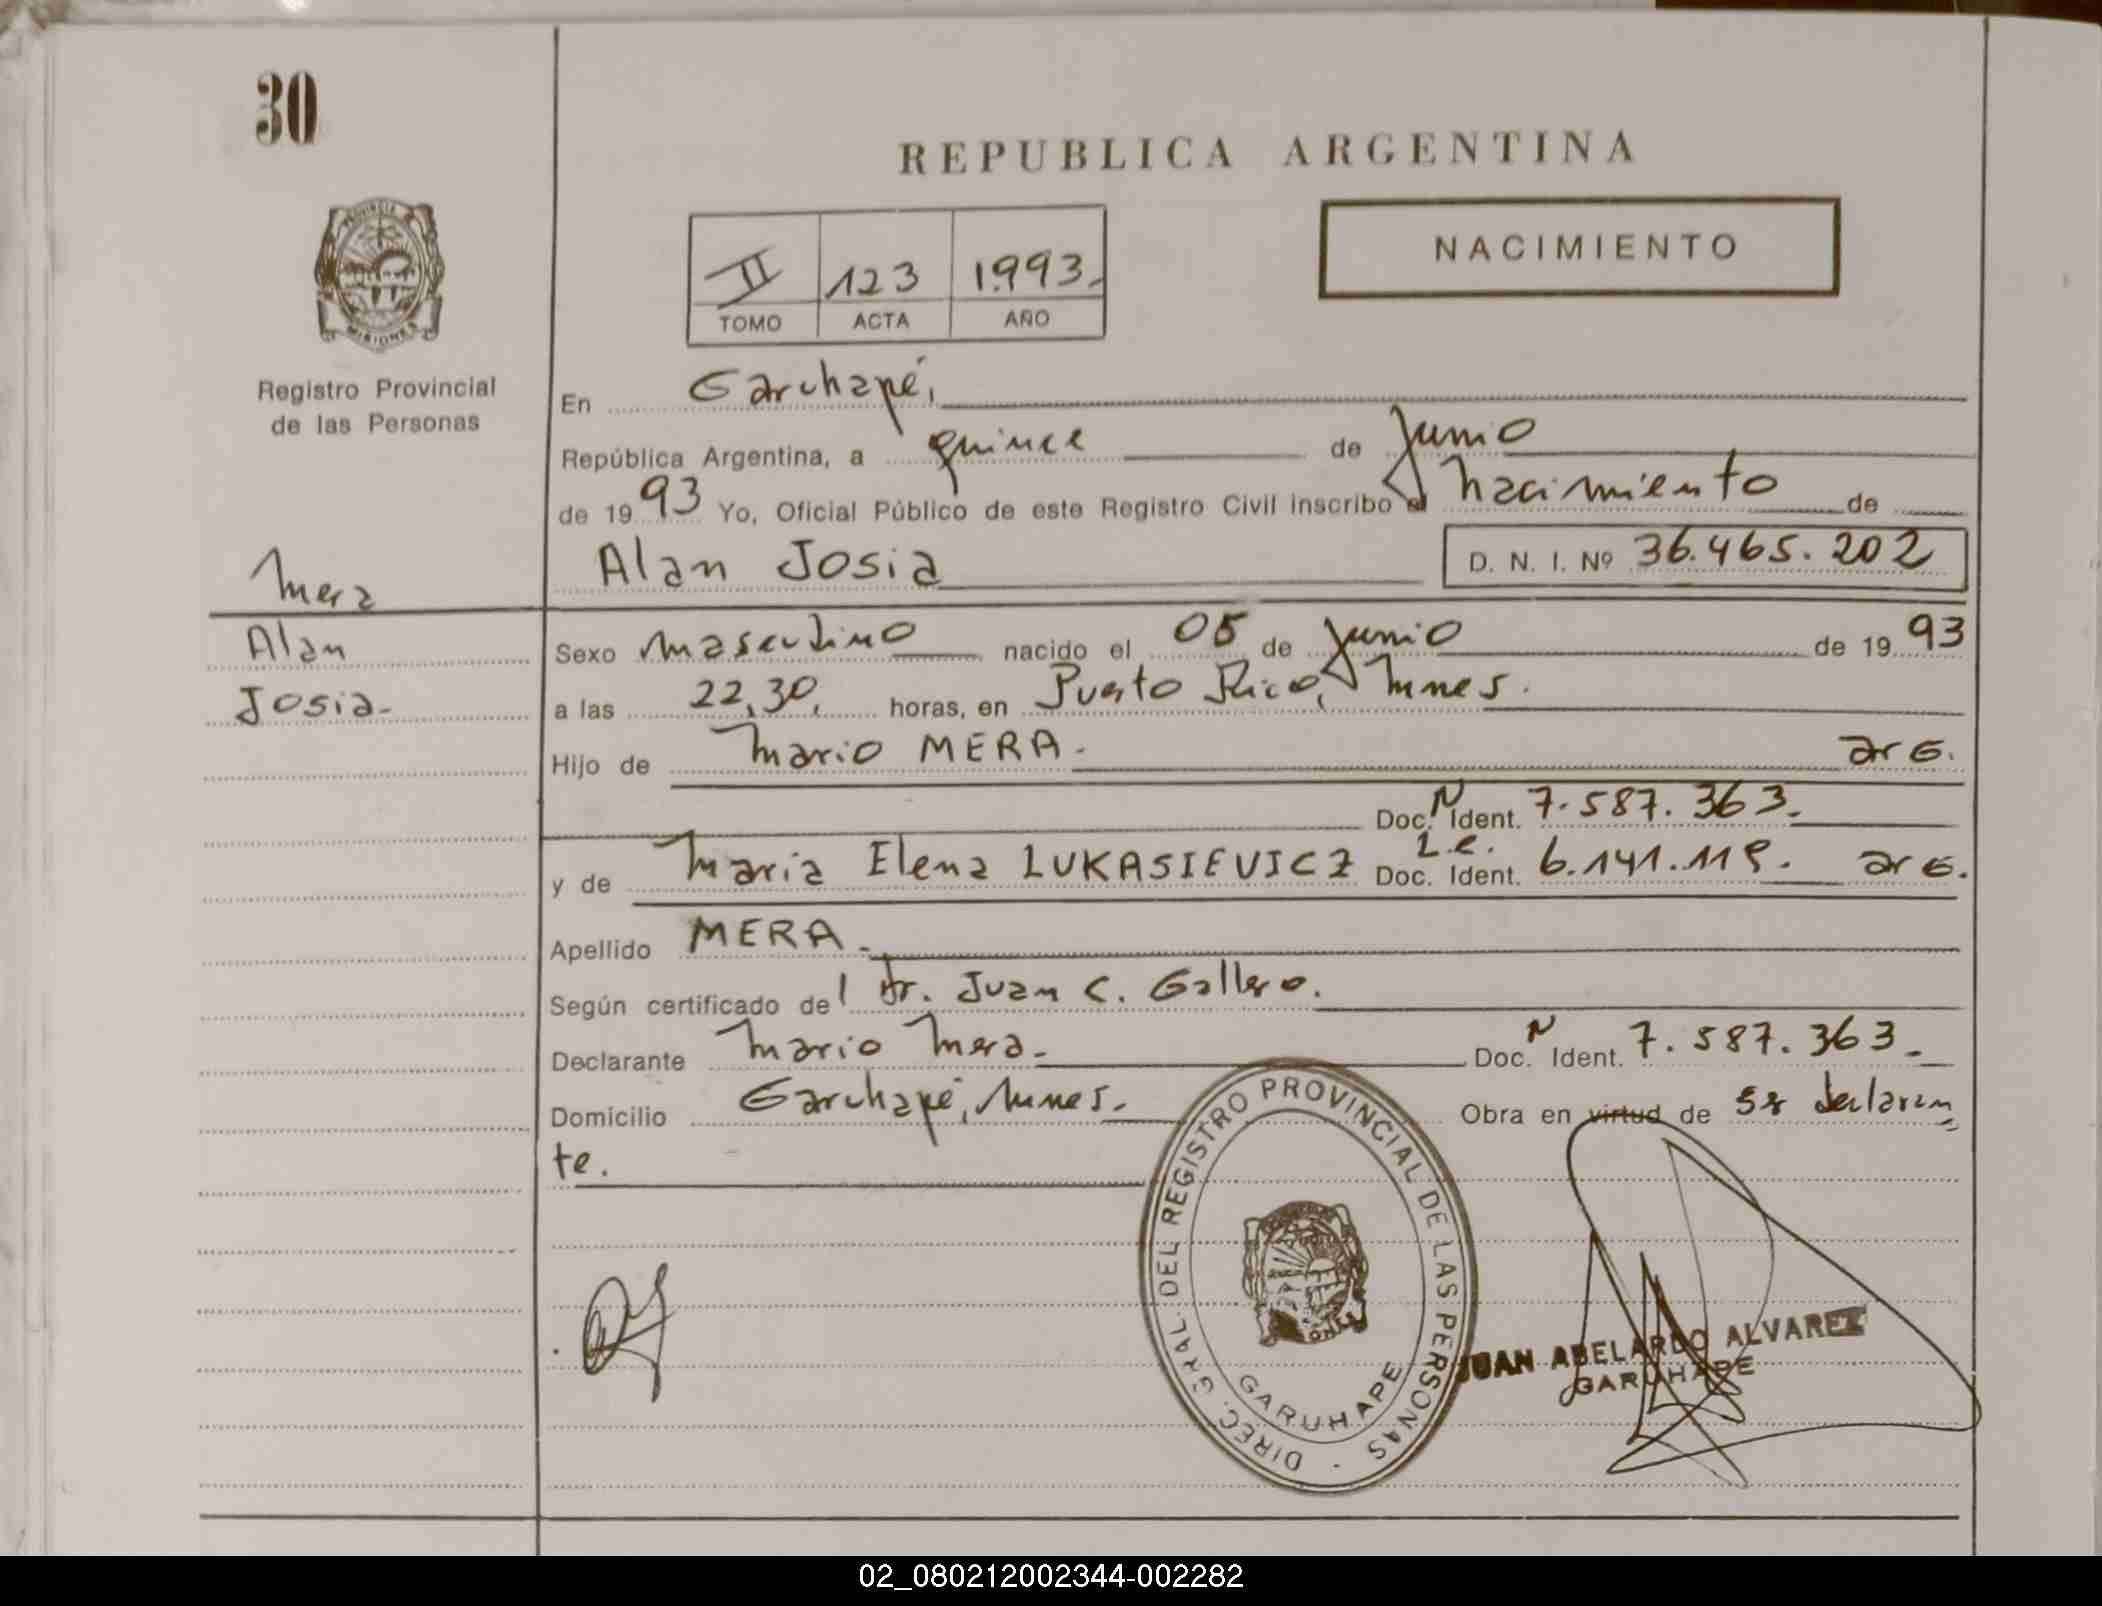 30
REPUBLICA ARGENTINA
PROVINCIA
MISIONES
Registro Provincial
de las Personas
NACIMIENTO
II 123 1.993.-
TOMO ACTA AÑO
En Garuhapé,
República Argentina, a quince de Junio
de 1993 Yo, Oficial Público de este Registro Civil inscribo el nacimiento de
Alan Josia D. N. I. Nº 36.465.202
Mera
Alan
Josia-
Sexo masculino nacido el 05 de Junio de 1993
a las 22,30, horas, en Puerto Rico, Mnes.
Hijo de Mario MERA. arg.
Doc. N Ident. 7.587.363.-
y de Maria Elena LUKASIEVICZ L.C. Doc. Ident. 6.141.119. arg.
Apellido MERA.-
Según certificado del Dr. Juan C. Gallero.
Declarante Mario Mera.- Doc. N Ident. 7.587.363.-
Domicilio Garuhapé, Mnes.- Obra en virtud de ser declaran
te.
DIREC. GRAL. DEL REGISTRO PROVINCIAL DE LAS PERSONAS -
GARUHAPE
JUAN ABELARDO ALVAREZ
GARUHAPE
02_080212002344-002282